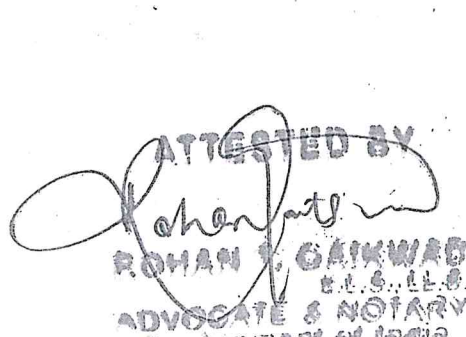 ATTESTED BY
ROHAN S. GAIKWAD
B.L.S., LL.B.
ADVOCATE & NOTARY